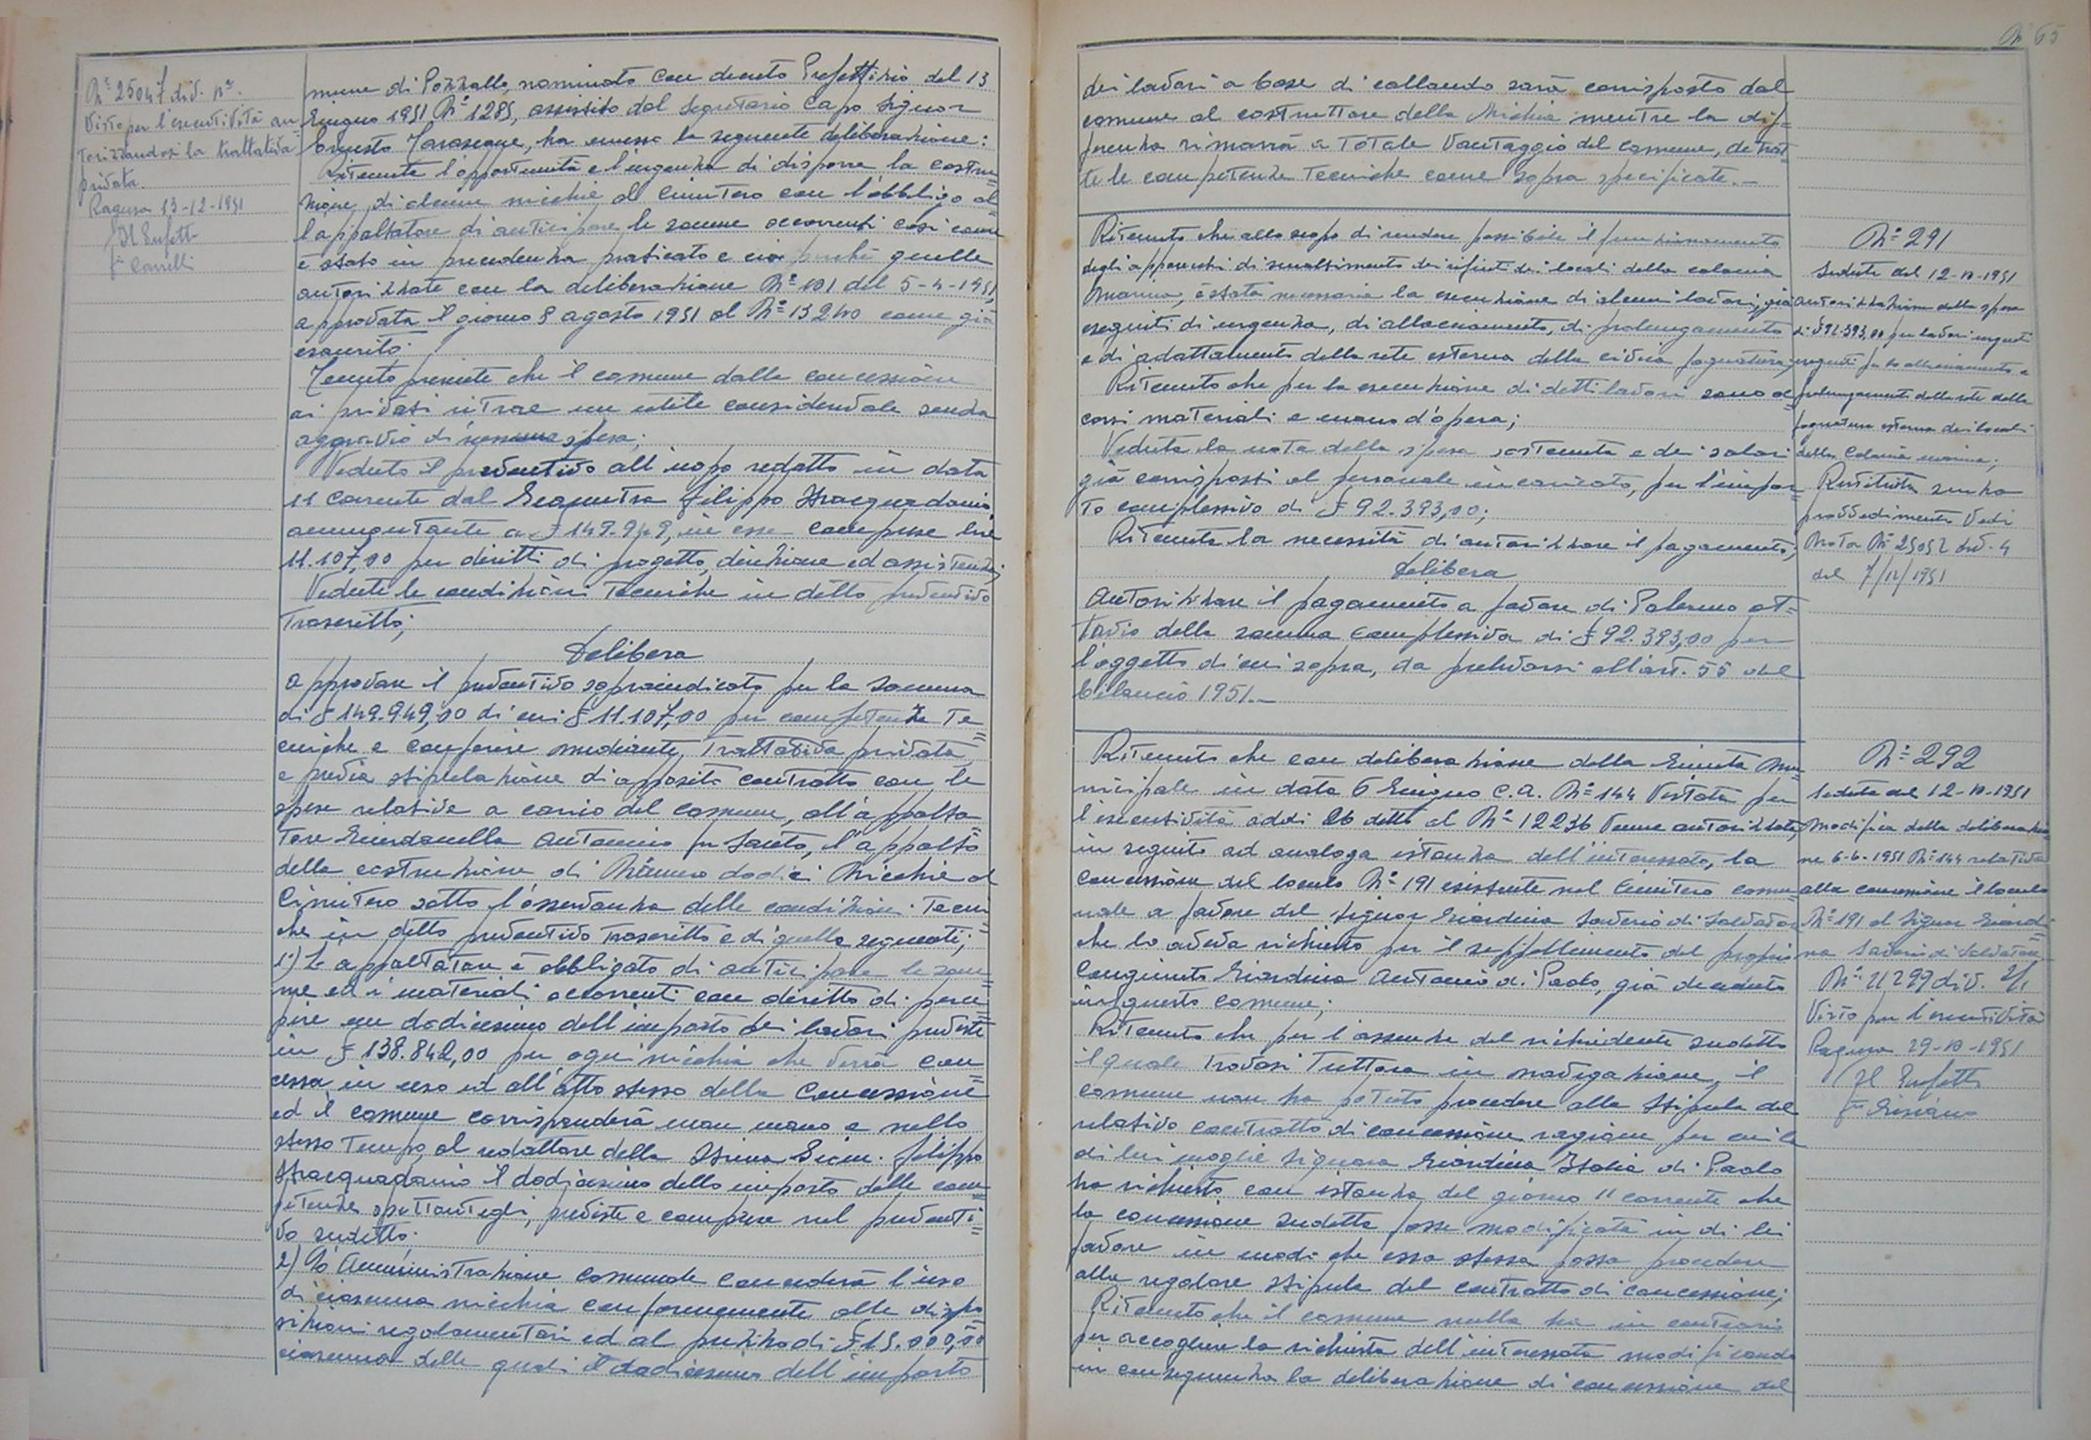 N° 25047 div. pª.
Visto per l'esecutività au=
torizzandosi la trattativa
privata.
Ragusa 13-12-1951
Il Prefetto
mune di Pozzallo, nominato con decreto Prefettizio del 13
Giugno 1951 N° 1285, assistito dal Segretario Capo Signor
ha emesso la seguente deliberazione:
Ritenuta l'opportunità e l'urgenza di disporre la costru=
zione di alcune nicchie al Cimitero con l'obbligo al=
l'appaltatore di anticipare le somme occorrenti così come
è stato in precedenza praticato e cioè quelle
autorizzate con la deliberazione N° 101 del 5-4-1951,
approvata il giorno 8 agosto 1951 al N° 13240 come già
esaurito;
Tenuto presente che il comune dalla concessione
ai privati ritrae un utile considerevole senza
aggravio di nessuna spesa;
Veduto il preventivo all'uopo redatto in data
11 corrente dal Geometra Filippo Stracquadanio
ammontante a £ 149.949, in esse comprese lire
11.107,00 per diritti di progetto, direzione ed assistenza;
Vedute le condizioni tecniche in detto preventivo
trascritte;
Delibera
Approvare il preventivo sopraindicato per la somma
di £ 149.949,00 di cui £ 11.107,00 per competenze te=
cniche e conferire mediante trattativa privata
e previa stipulazione di apposito contratto con le
spese relative a carico del comune, all'appalta
tore Antonino fu Santo, l'appalto
della costruzione di Numero dodici Nicchie al
Cimitero sotto l'osservanza delle condizioni tecni=
che in detto preventivo trascritte e di quelle seguenti;
1°) L'appaltatore è obbligato di anticipare le som=
me ed i materiali occorrenti con diritto di perce=
pire un dodicesimo dell'importo dei lavori previsto
in £ 138.842,00 per ogni nicchia che verrà con=
cessa in uso ed all'atto stesso della concessione
ed il comune corrisponderà man mano e nello
stesso tempo al redattore della stima Geom. Filippo
Stracquadanio il dodicesimo dello importo delle com=
petenze spettantegli, previste e comprese nel preventi=
vo sudetto.
2) L'Amministrazione comunale concederà l'uso
di ciascuna nicchia conformemente alle dispo
sizioni regolamentari ed al prezzo di £ 15.000,00
ciascuna delle quali il dodicesimo dell'importo
N° 65
dei lavori a base di collaudo sarà corrisposto dal
comune al costruttore della Nicchia mentre la dif=
ferenza rimarrà a totale vantaggio del comune, detrat=
te le competenze tecniche come sopra specificate.-
Ritenuto che allo scopo di rendere possibile il funzionamento
degli apparecchi di smaltimento dei rifiuti dei locali della colonia
Marina, è stata necessaria la esecuzione di alcuni lavori, già
eseguiti di urgenza, di allacciamento, di prolungamento
e di adattamento della rete esterna della civica fognatura;
Ritenuto che per la esecuzione di detti lavori sono oc=
corsi materiali e mano d'opera;
Veduta la nota della spesa sostenuta e dei salari
già corrisposti al personale incaricato, per l'impor=
to complessivo di £ 92.393,00;
Ritenuta la necessità di autorizzare il pagamento;
Delibera
Autorizzare il pagamento a favore di Palermo Ot=
tavio della somma complessiva di £ 92.393,00 per
l'oggetto di cui sopra, da prelevarsi all'art. 55 del
bilancio 1951.-
N° 291
Seduta del 12-10-1951
Autorizzazione della spesa
di £ 92.393,00 per lavori urgenti
eseguiti per lo allacciamento e
prolungamento della rete della
fognatura esterna dei locali
della Colonia marina;
Restituita senza
provvedimento vedi
Nota N° 25052 div. 4
del 7/12/1951
Ritenuto che con deliberazione della Giunta Mu=
nicipale in data 6 Giugno c.a. N° 144 vistata per
l'esecutività addì 26 detto al N° 12236 venne autorizzata,
in seguito ad analoga istanza dell'interessato, la
concessione del loculo N° 191 esistente nel Cimitero comu
nale a favore del Signor Giardina Saverio di Salvatore
che lo aveva richiesto per il seppellimento del proprio
congiunto Giardina Antonio di Paolo, già deceduto
in questo comune;
Ritenuto che per l'assenza del richiedente sudetto
il quale trovasi tuttora in navigazione, il
comune non ha potuto procedere alla stipula del
relativo contratto di concessione ragione per cui la
di lui moglie Signora Giardina Italia di Paolo
ha richiesto con istanza del giorno 11 corrente che
la concessione sudetta fosse modificata in di lei
favore in modo che essa stessa possa procedere
alla regolare stipula del contratto di concessione;
Ritenuto che il comune nulla ha in contrario
per accogliere la richiesta dell'interessata modificando
in conseguenza la deliberazione di concessione del
N° 292
Seduta del 12-10-1951
Modifica della deliberazio
ne 6-6-1951 N° 144 relativa
alla concessione il loculo
N° 191 al Signor Giardi=
na Saverio di Salvatore
N° 21299 div. 2/1
Visto per l'esecutività
Ragusa 29-10-1951
Il Prefetto